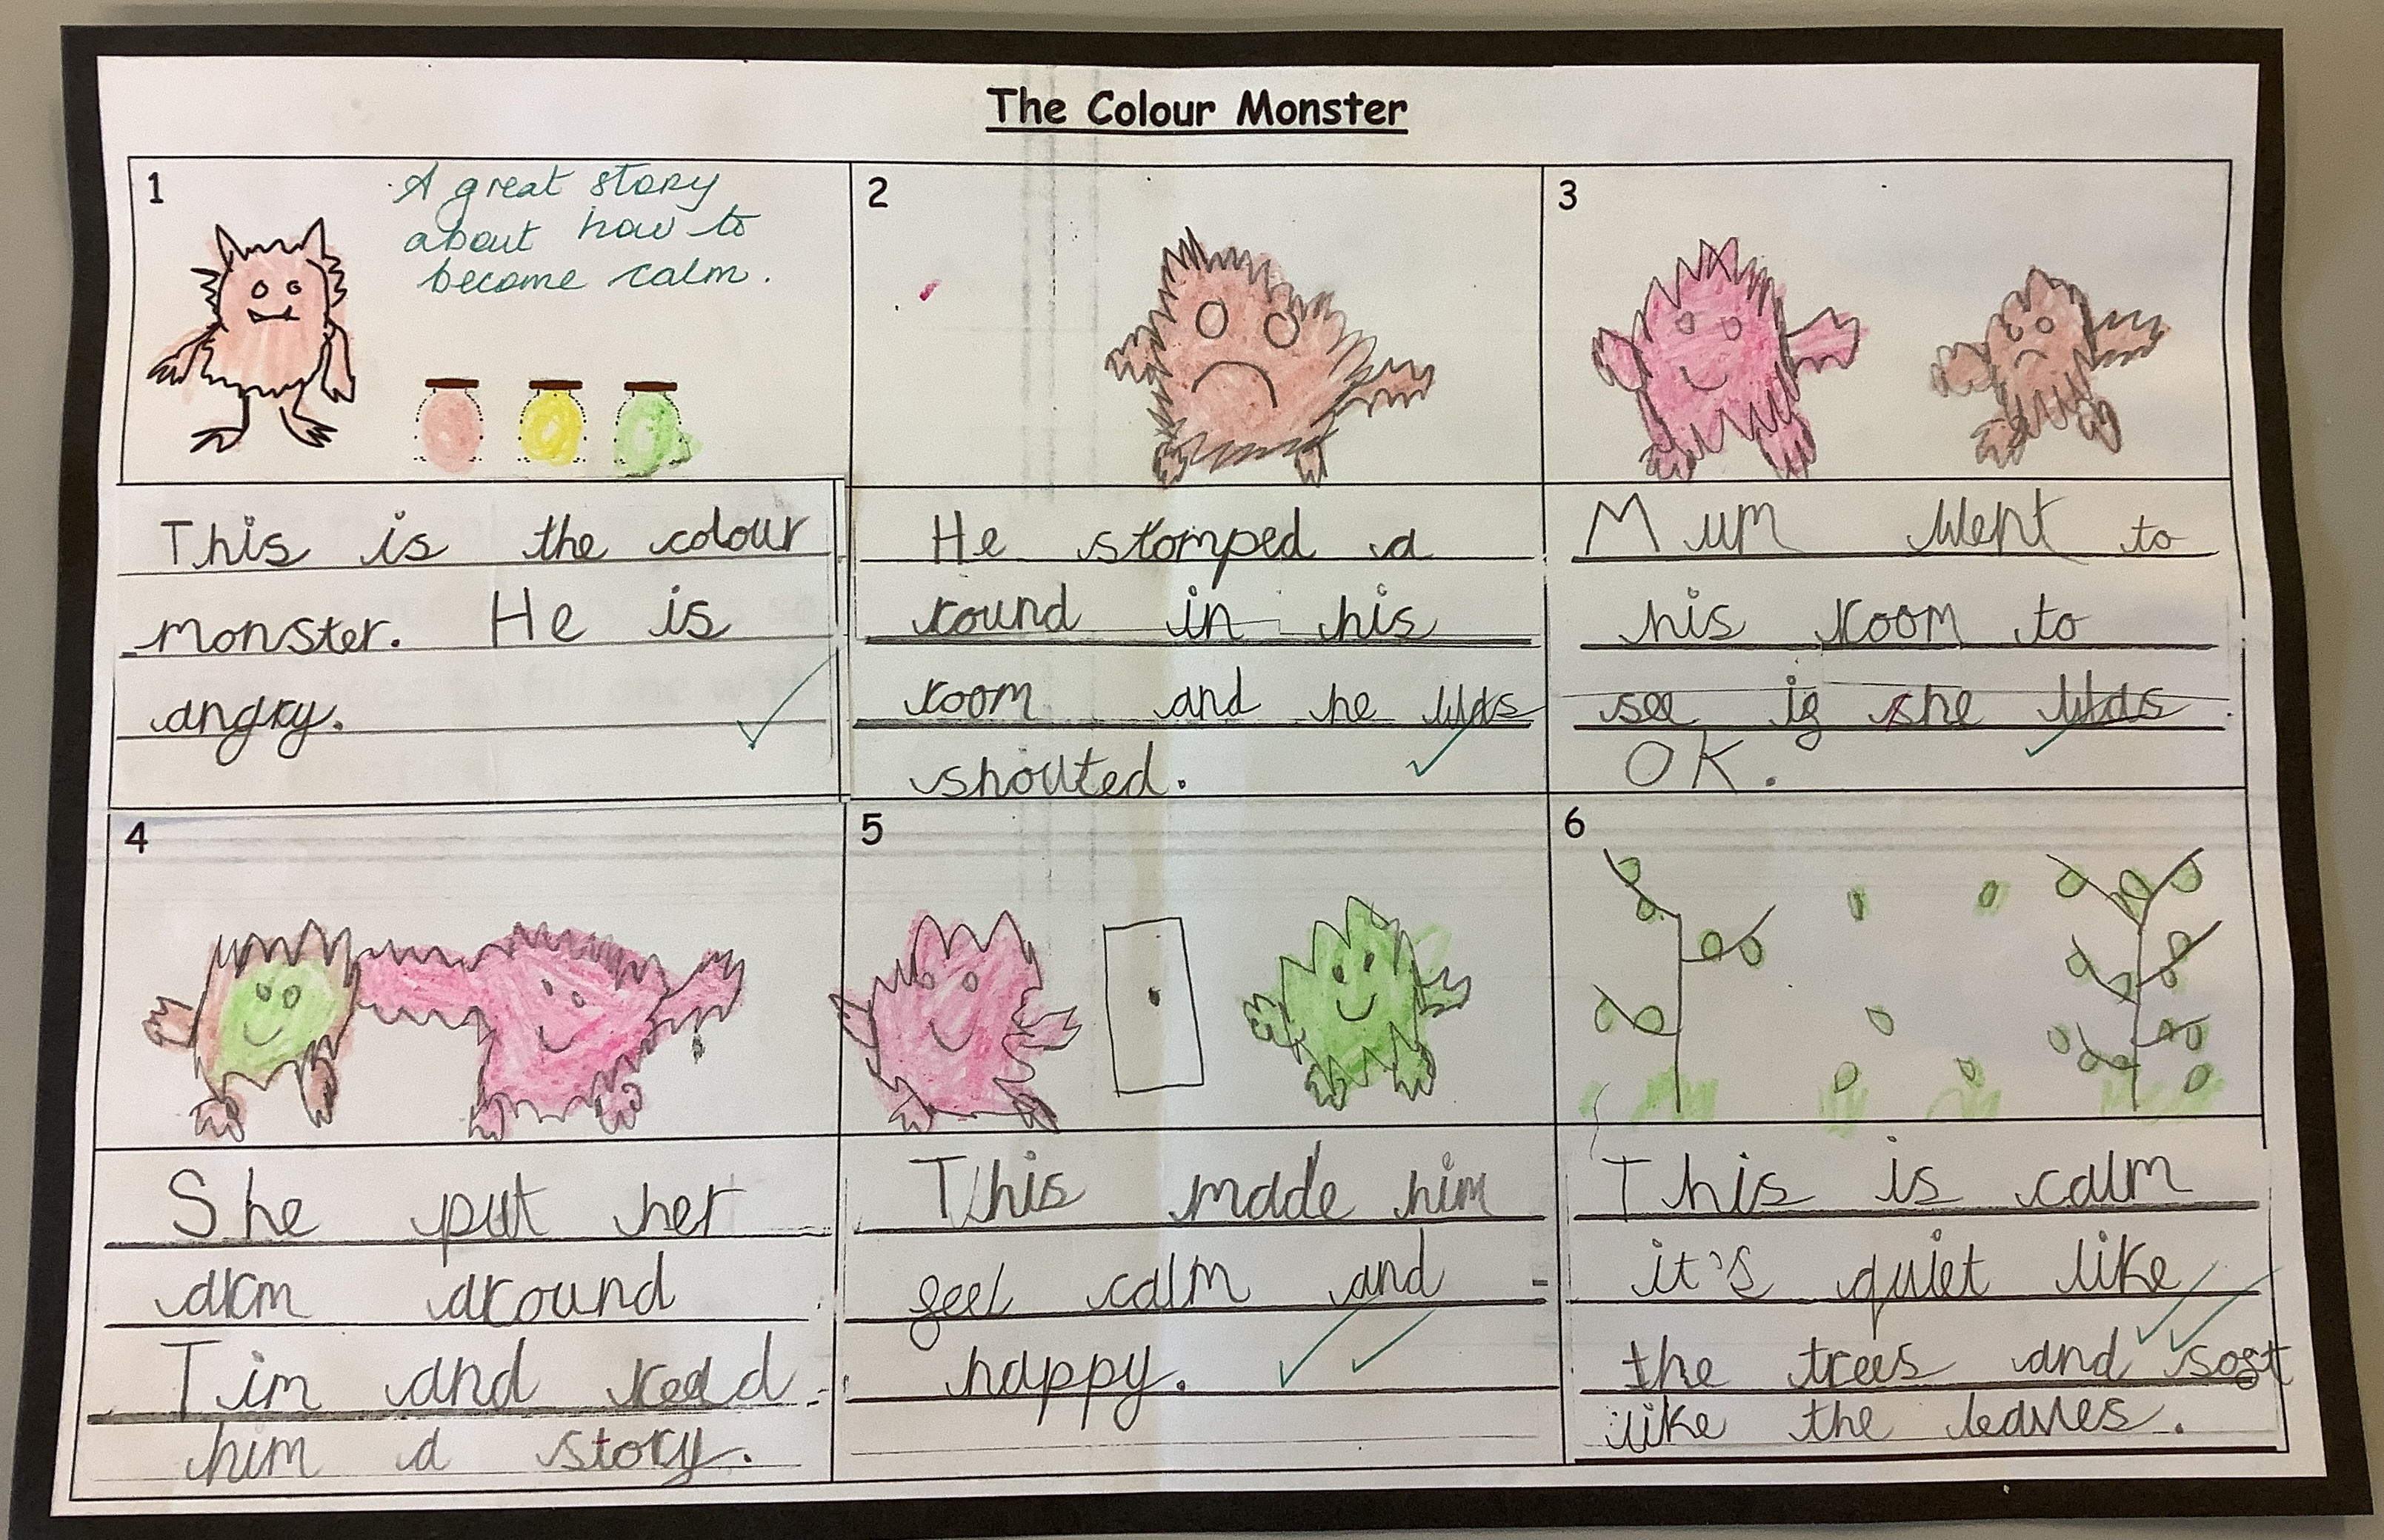 The Colour Monster
1
A great story
about how to
become calm.
This is the colour
monster. He is
angry.
2
He stomped a
round in his
room and he was
shouted.
3
Mum went to
his room to
see if she was
OK.
4
She put her
arm around
Tim and read
him a story.
5
This made him
feel calm and
happy.
6
This is calm
it's quiet like
the trees and soft
like the leaves.